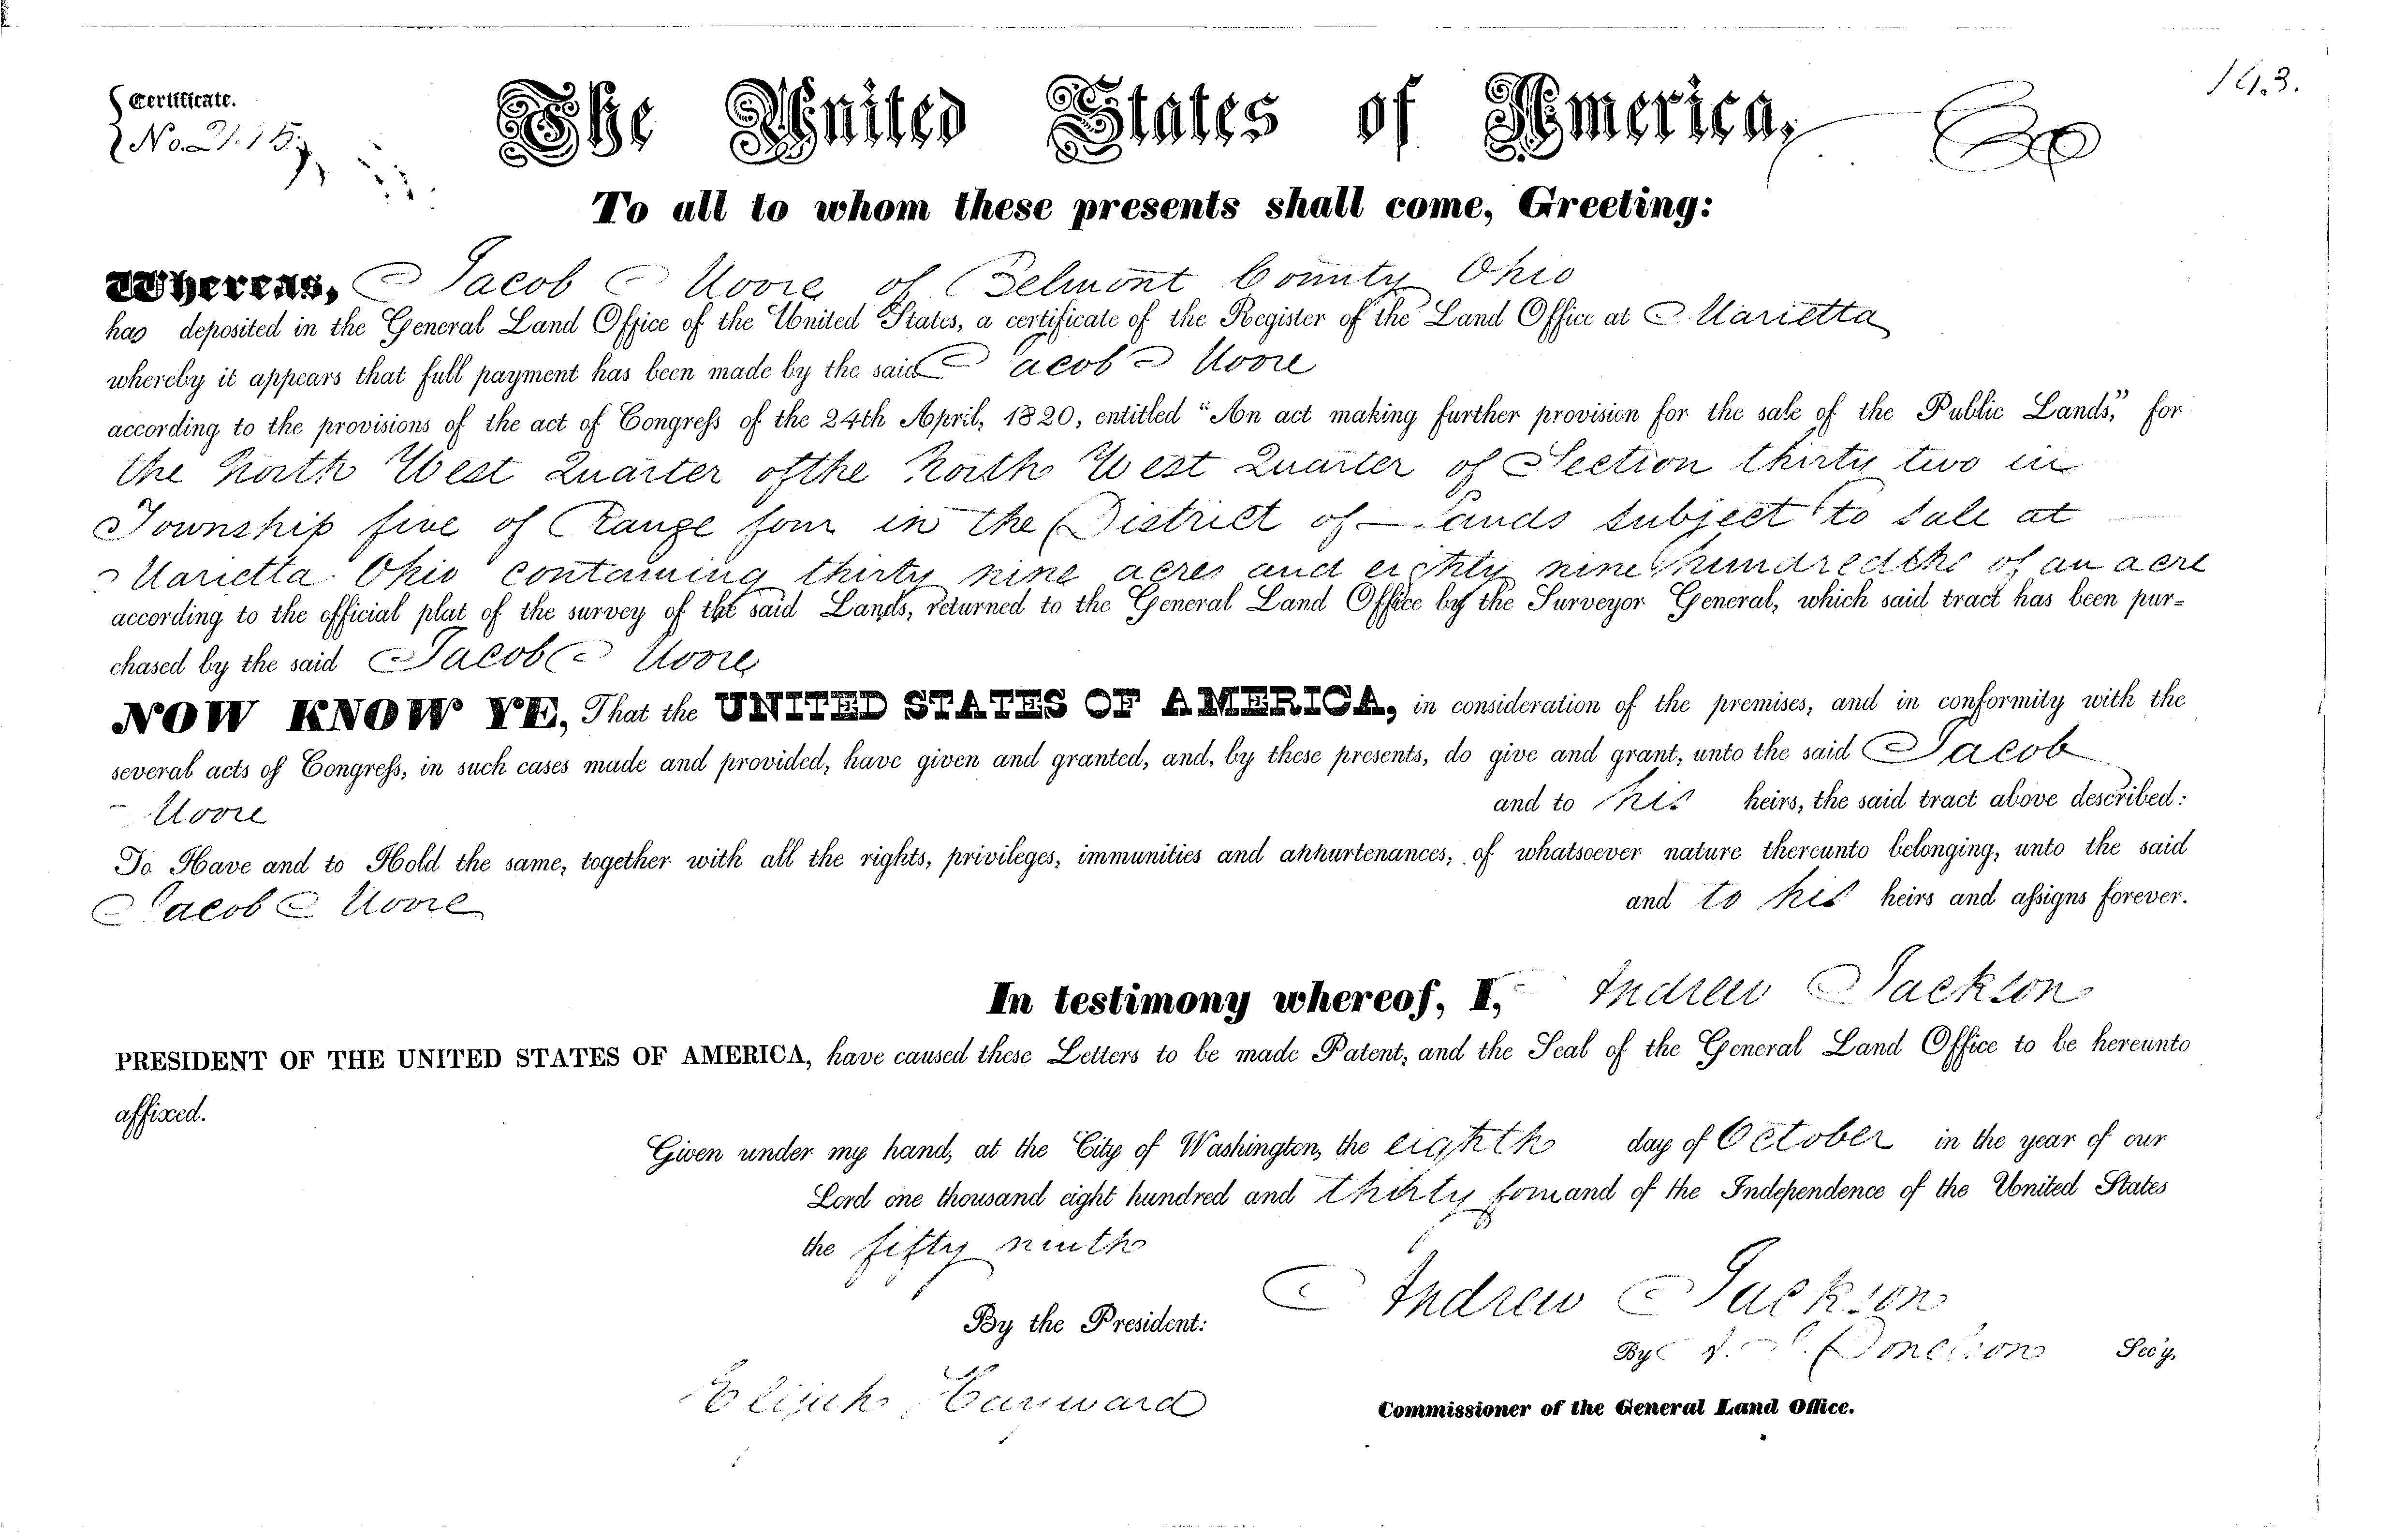 Certificate.
143.
No. 2157
The United States of America,
To all to whom these presents shall come, Greeting:
Whereas, Jacob Moore of Belmont County Ohio
has deposited in the General Land Office of the United States, a certificate of the Register of the Land Office at Marietta
whereby it appears that full payment has been made by the said Jacob Moore
according to the provisions of the act of Congress of the 24th April, 1820, entitled "An act making further provision for the sale of the Public Lands," for
the North West Quarter of the North West Quarter of Section thirty two in
Township five of Range four in the District of Lands subject to sale at
Marietta Ohio containing thirty nine acres and eighty nine hundredths of an acre
according to the official plat of the survey of the said Lands, returned to the General Land Office by the Surveyor General, which said tract has been pur-
chased by the said Jacob Moore
NOW KNOW YE, That the UNITED STATES OF AMERICA, in consideration of the premises, and in conformity with the
several acts of Congress, in such cases made and provided, have given and granted, and, by these presents, do give and grant, unto the said Jacob
Moore and to his heirs, the said tract above described:
To Have and to Hold the same, together with all the rights, privileges, immunities and appurtenances, of whatsoever nature thereunto belonging, unto the said
Jacob Moore and to his heirs and assigns forever.
In testimony whereof, I, Andrew Jackson
PRESIDENT OF THE UNITED STATES OF AMERICA, have caused these Letters to be made Patent, and the Seal of the General Land Office to be hereunto
affixed.
Given under my hand, at the City of Washington, the eighth day of October in the year of our
Lord one thousand eight hundred and thirty four and of the Independence of the United States
the fifty ninth
By the President: Andrew Jackson
By A. J. Donelson Sec'y.
Elijah Hayward Commissioner of the General Land Office.